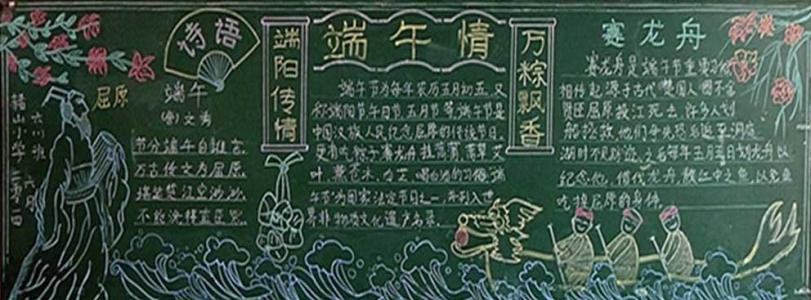 诗语
端午
(唐)文秀
节分端午自谁言,
万古传文为屈原,
笑楚江空渺渺,
不能洗得直臣冤.
屈原
六(1)班
山小学
六月
端阳传情
端午情
万粽飘香
端午节为每年农历五月初五,又
称端阳节午日节、五月节等,端午节是
中国汉族人民纪念屈原的传统节日,
更有吃粽子赛龙舟挂菖蒲、蒿草艾
叶,薰苍术、白芷、喝的习俗,端
午节为国家法定节日之一,并列入世
界非物质文化遗产名录。
赛龙舟
赛龙舟是端午节重要习俗
相传起源于古代楚国人因不舍
贤臣屈原投江死去,许多人划
船拯救他们争先恐后追至洞庭
湖时不见踪迹,之后每年五月五日划龙舟以
纪念他,借代龙舟散江中之鱼,以免鱼
吃掉屈原的身体。